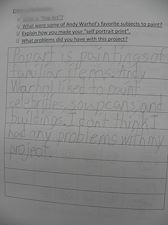 What were some of Andy Warhol's favorite subjects to paint?
Explain how you made your "self portrait print".
What problems did you have with this project?
Pop art is paintings of
familiar items. Andy
Warhol liked to paint
celebrities, soup cans and
I don't think I
had any problems with my
project.